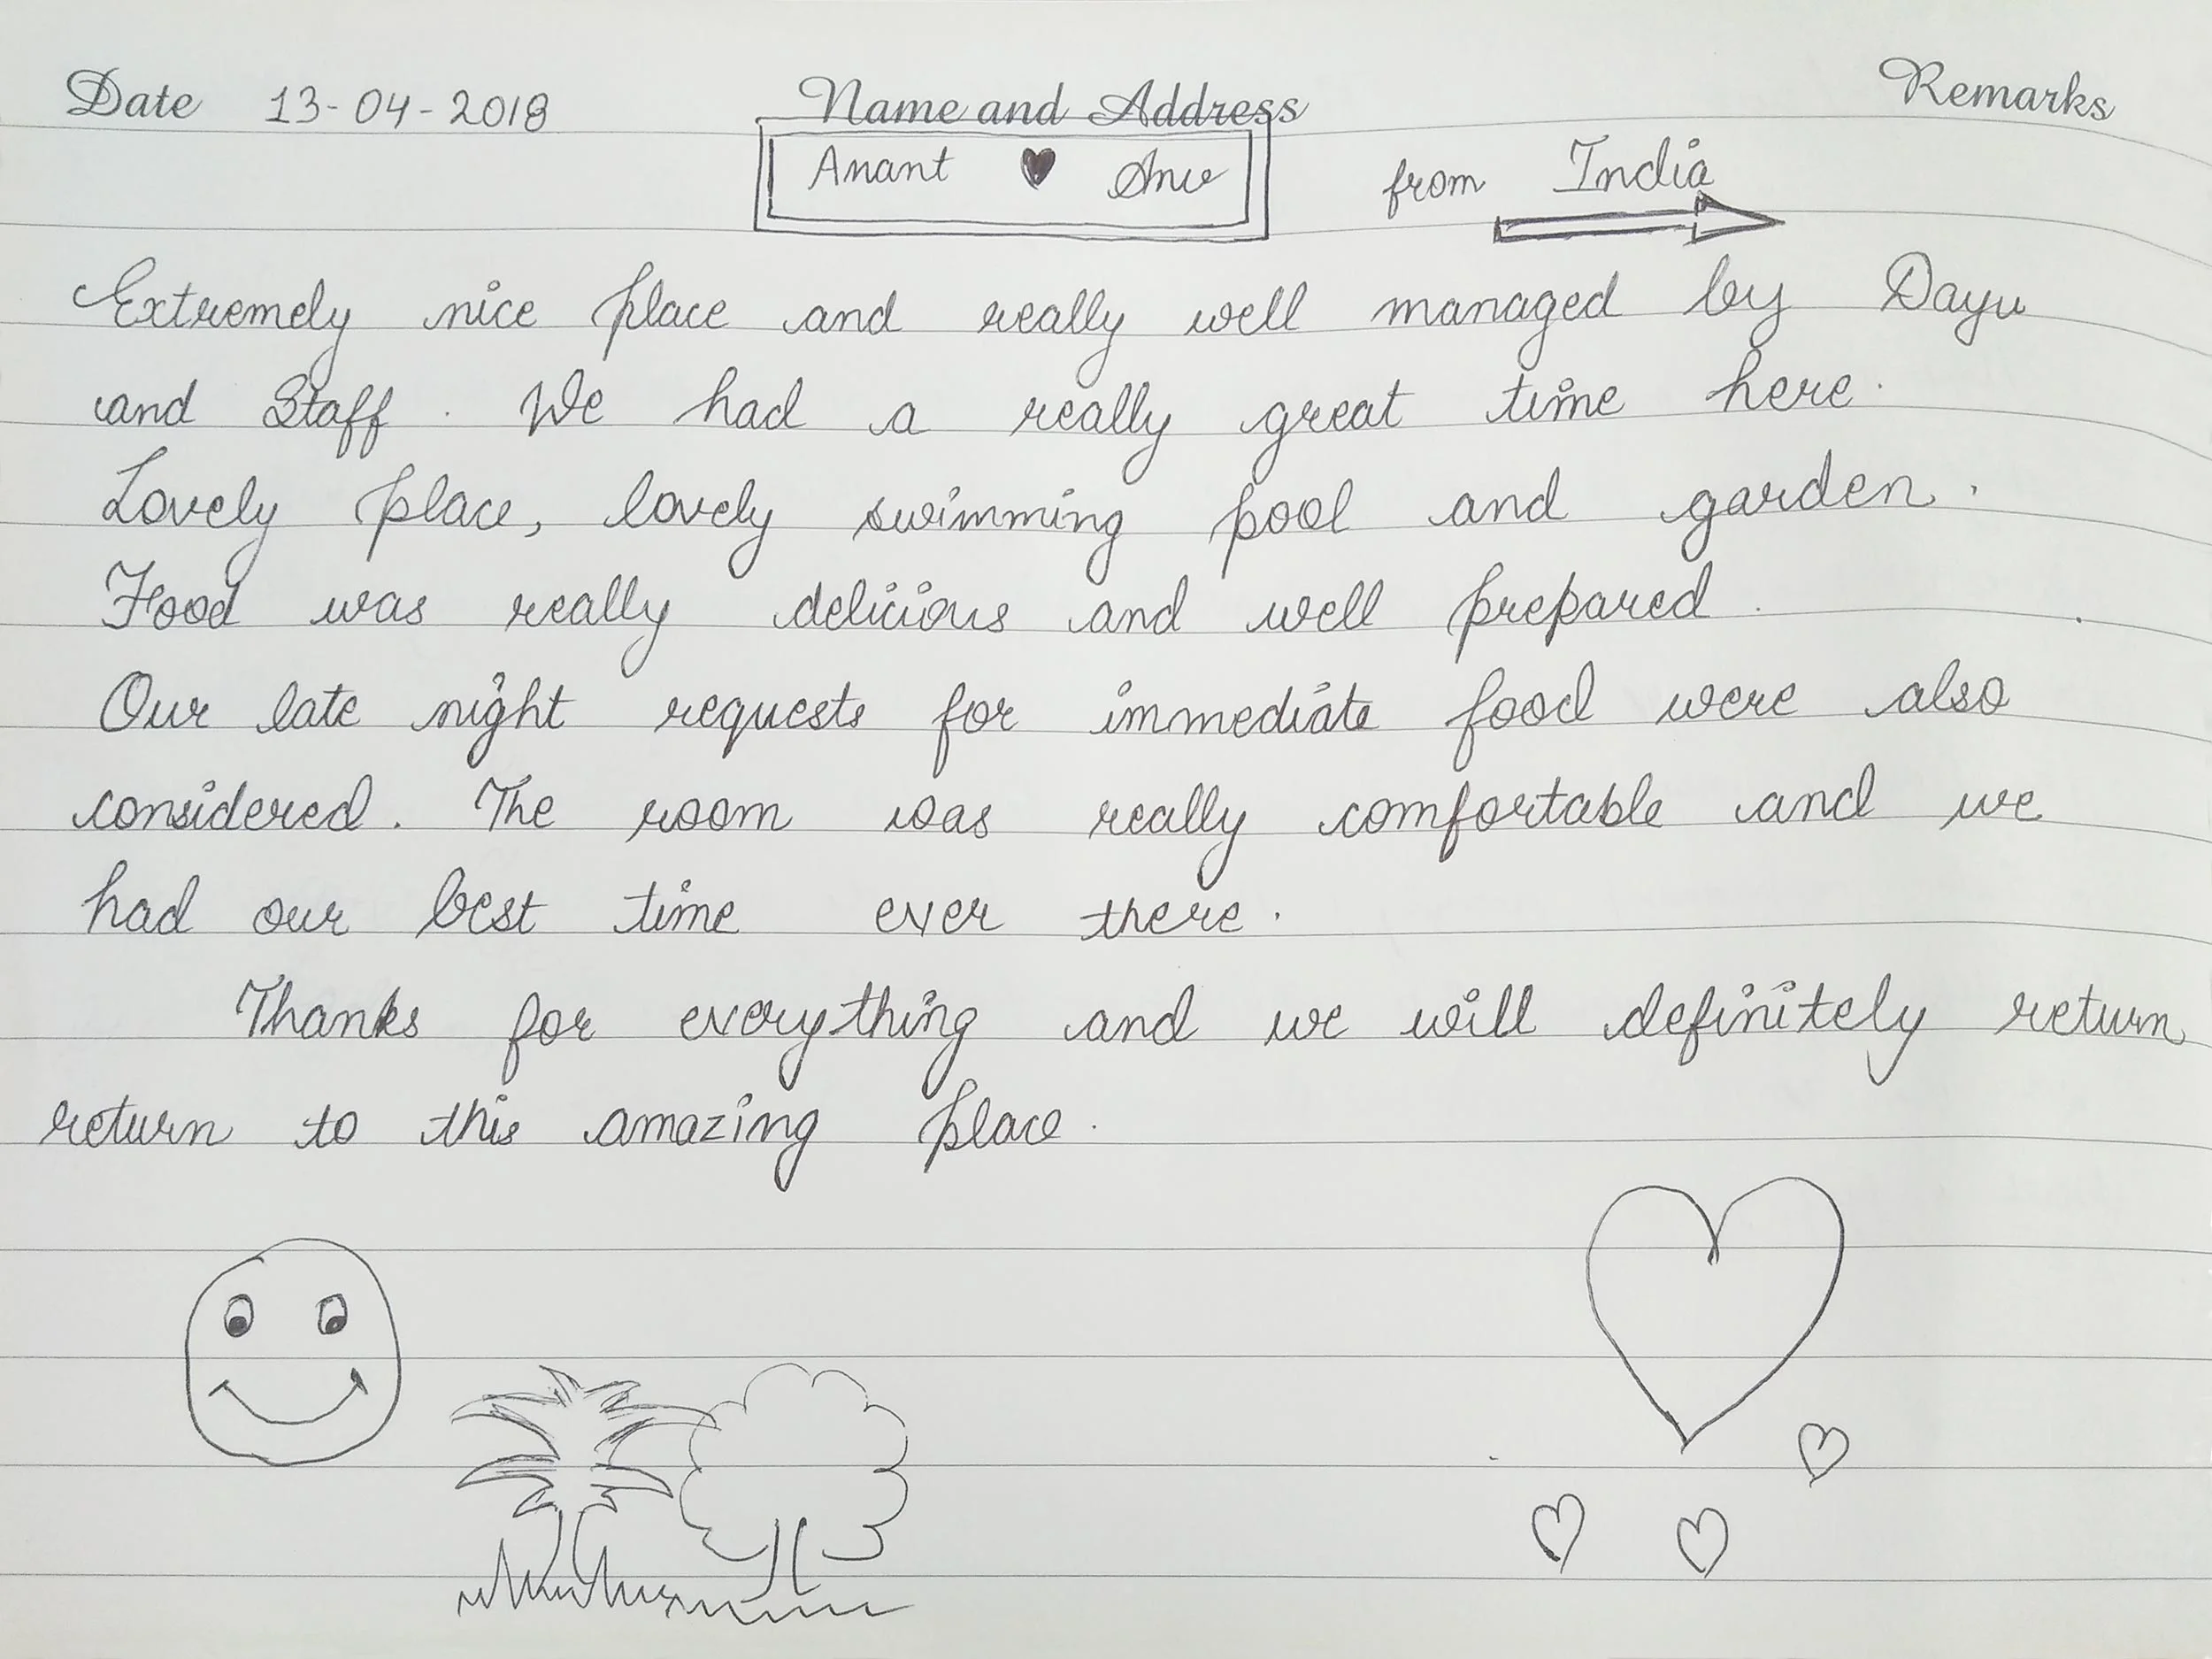 Date 13-04-2018 Name and Address Remarks
Anant ♥ Anu from India
Extremely nice place and really well managed by Dayu
and Staff. We had a really great time here.
Lovely place, lovely swimming pool and garden.
Food was really delicious and well prepared.
Our late night requests for immediate food were also
considered. The room was really comfortable and we
had our best time ever there.
Thanks for everything and we will definitely return
return to this amazing place.